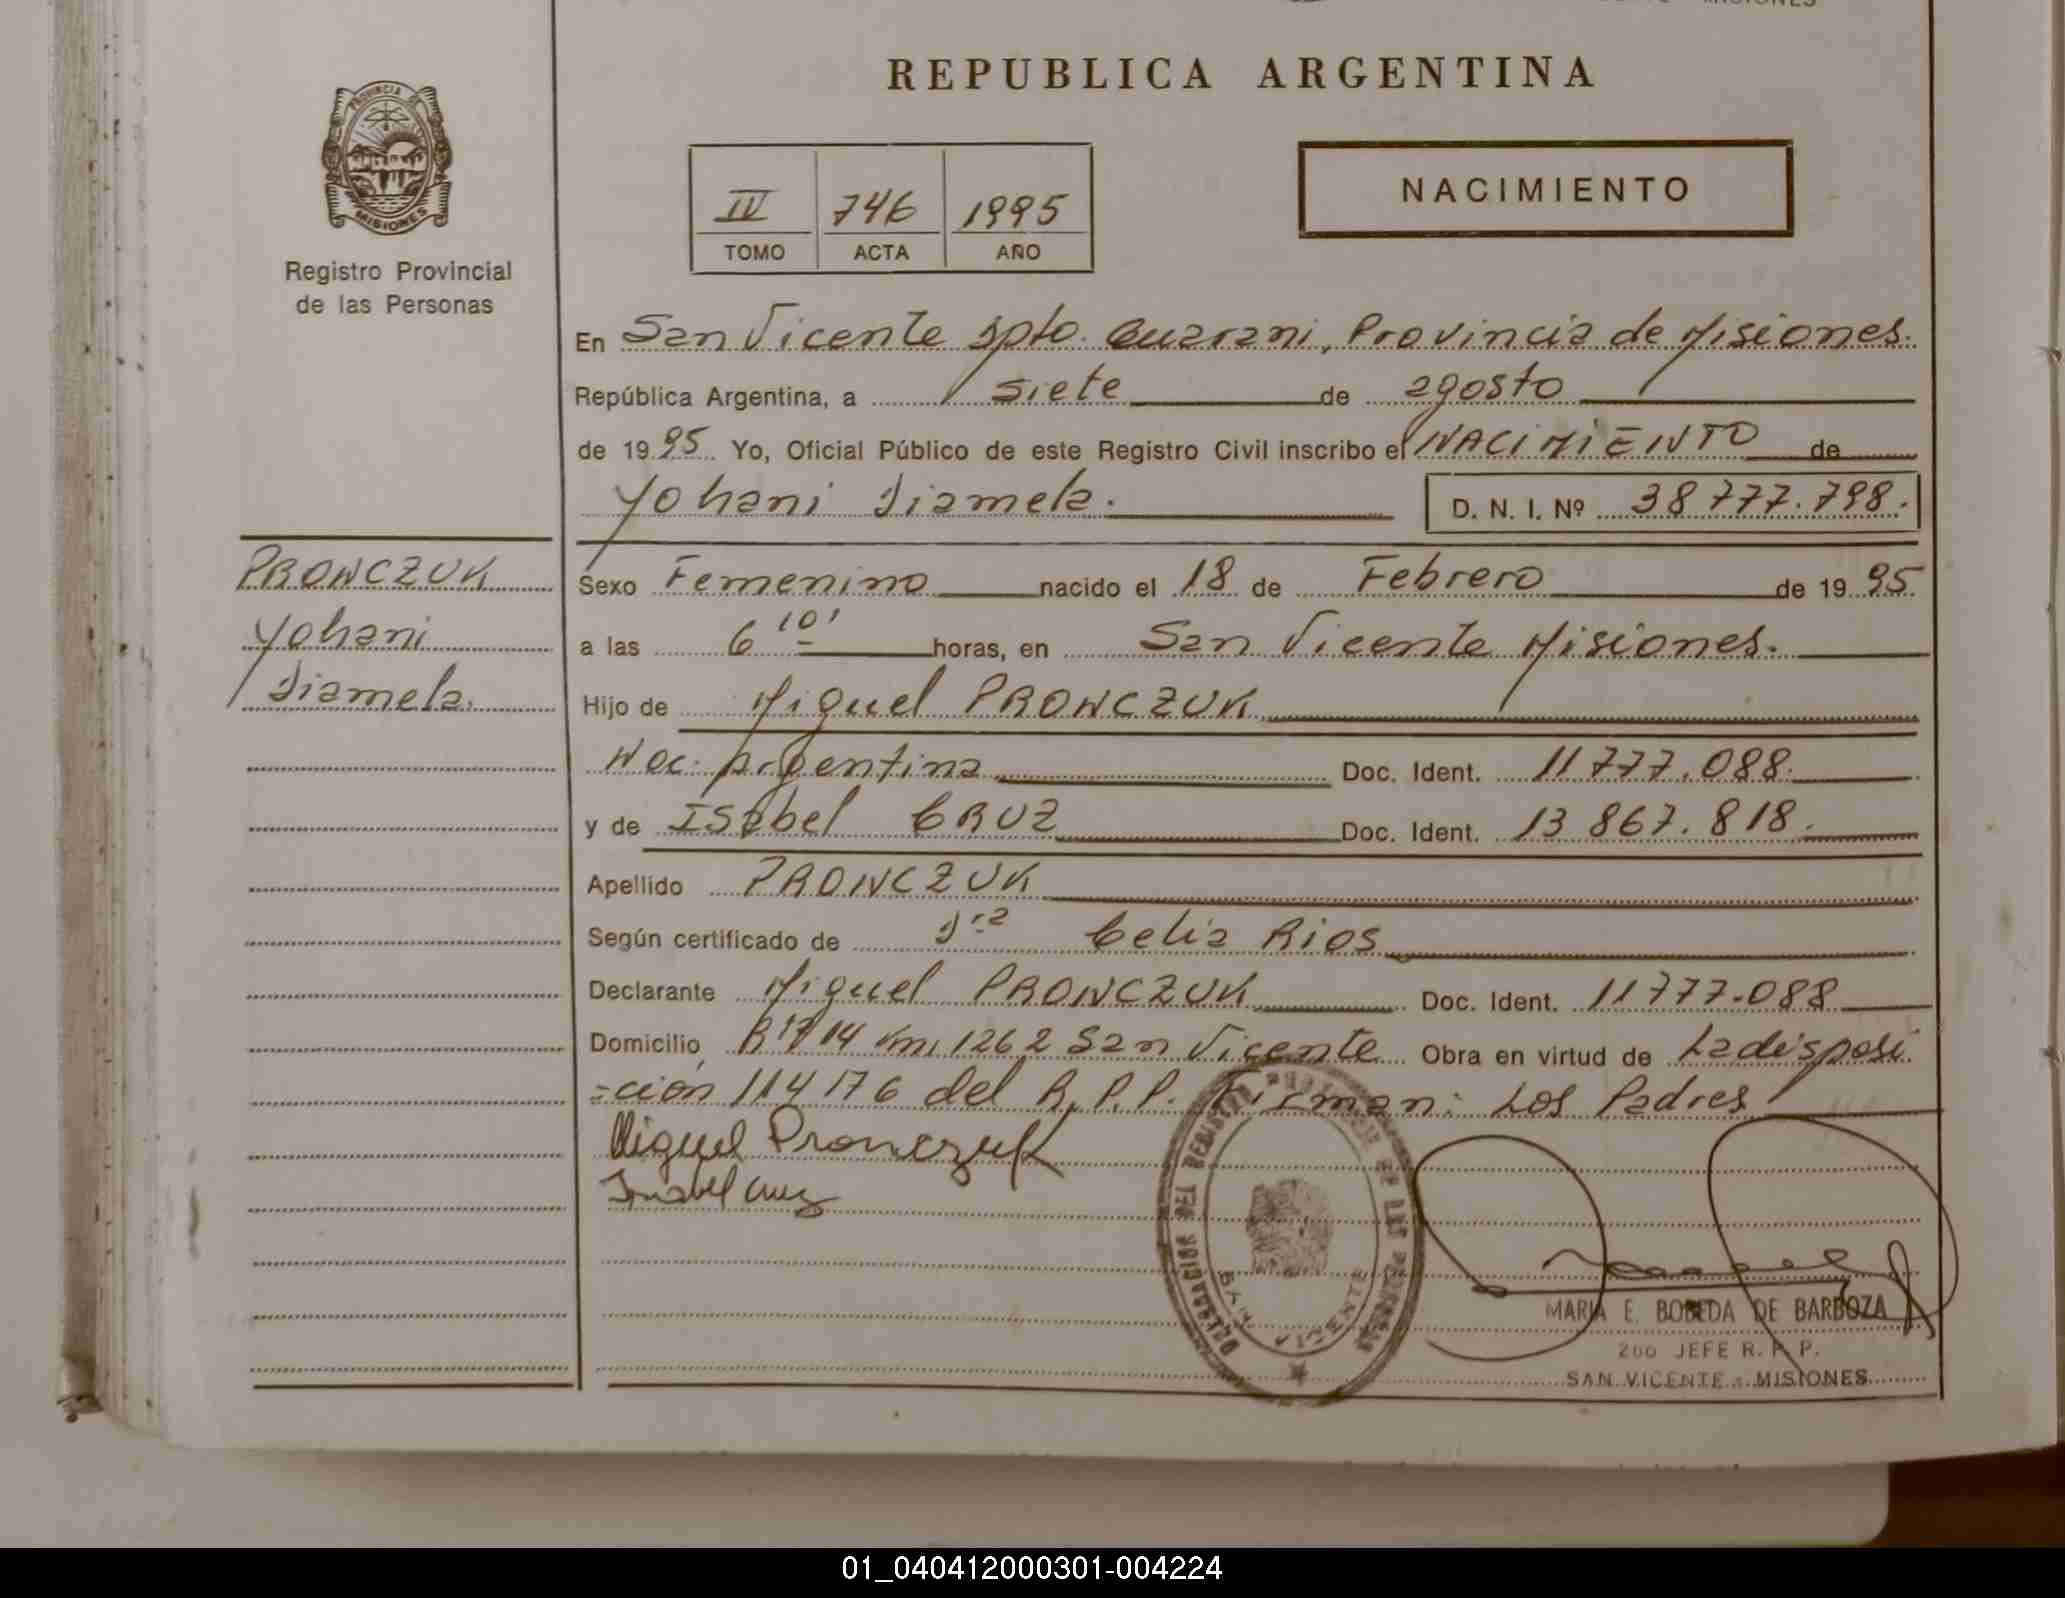 REPUBLICA ARGENTINA
PROVINCIA DE
MISIONES
Registro Provincial
de las Personas
IV 746 1995
TOMO ACTA AÑO
NACIMIENTO
En San Vicente Dpto. Guarani, Provincia de Misiones.
República Argentina, a siete de agosto
de 1995 Yo, Oficial Público de este Registro Civil inscribo el NACIMIENTO de
Yohani Diamela. D. N. I. Nº 38 777.798.
PRONCZUK
Yohani
Diamela.
Sexo Femenino nacido el 18 de Febrero de 1995.
a las 6 10' horas, en San Vicente Misiones.
Hijo de Miguel PRONCZUK
Nac. Argentina Doc. Ident. 11 777.088.
y de ISabel CRUZ Doc. Ident. 13 867.818.
Apellido PRONCZUK
Según certificado de Dra Celia Rios
Declarante Miguel PRONCZUK Doc. Ident. 11777.088
Domicilio 14 km, 1262 San Vicente Obra en virtud de La disposi
=ción 114176 del R.P.P. Firman: Los Padres
Miguel Pronczuk
Isabel Cruz
DELEGACION DEL REGISTRO PROVINCIAL DE LAS PERSONAS
SAN VICENTE
MARIA E. BOBEDA DE BARBOZA
2do JEFE R. P. P.
SAN VICENTE - MISIONES
01_040412000301-004224